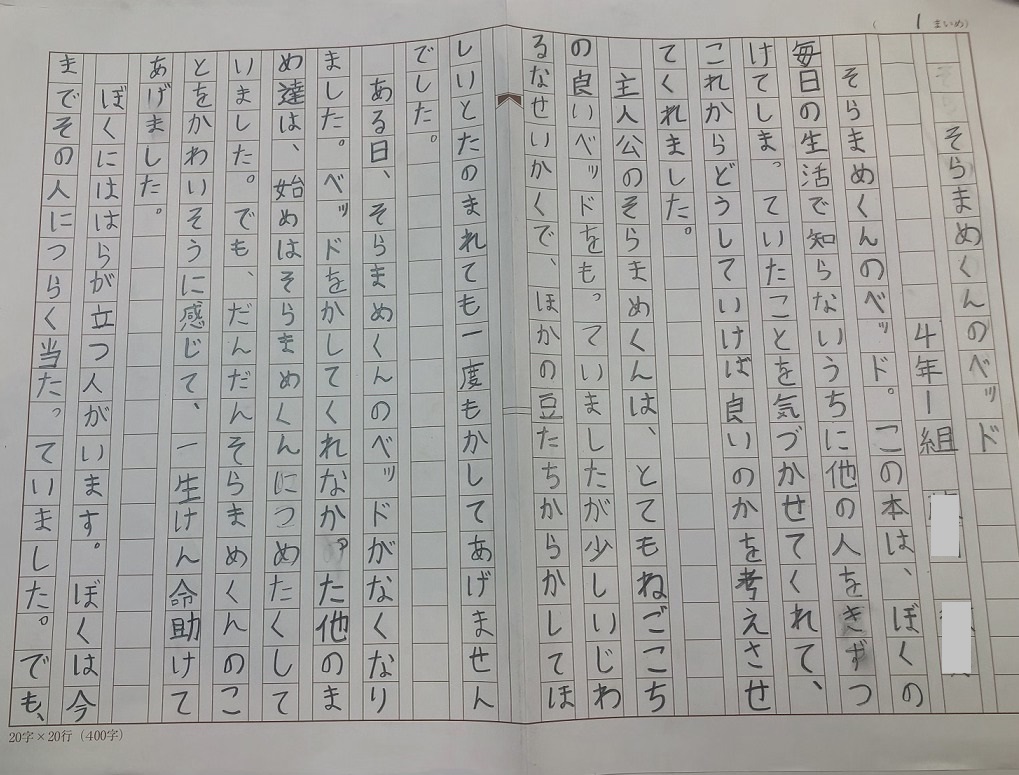 （ 1 まいめ）
そらまめくんのベッド
4年1組
そらまめくんのベッド。この本は、ぼくの
毎日の生活で知らないうちに他の人をきずつ
けてしまっていたことを気づかせてくれて、
これからどうしていけば良いのかを考えさせ
てくれました。
主人公のそらまめくんは、とてもねごこち
の良いベッドをもっていましたが少しいじわ
るなせいかくで、ほかの豆たちからかしてほ
しいとたのまれても一度もかしてあげません
でした。
ある日、そらまめくんのベッドがなくなり
ました。ベッドをかしてくれなかった他のま
め達は、始めはそらまめくんにつめたくして
いました。でも、だんだんそらまめくんのこ
とをかわいそうに感じて、一生けん命助けて
あげました。
ぼくにははらが立つ人がいます。ぼくは今
までその人につらく当たっていました。でも、
20字×20行（400字）